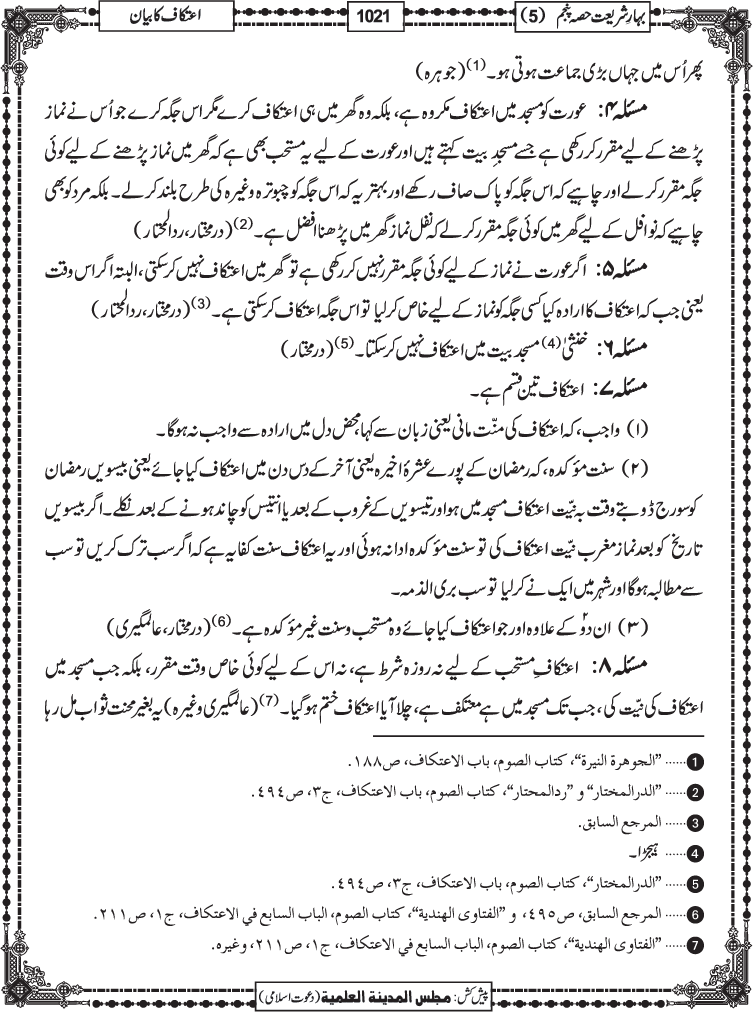 بہارِ شریعت حصہ پنجم (5)
1021
اعتکاف کا بیان
پھر اُس میں جہاں بڑی جماعت ہوتی ہو۔(1) (جوہرہ)
مسئلہ ۴: عورت کو مسجد میں اعتکاف مکروہ ہے، بلکہ وہ گھر میں ہی اعتکاف کرے مگر اس جگہ کرے جو اُس نے نماز
پڑھنے کے لیے مقرر کر رکھی ہے جسے مسجدِ بیت کہتے ہیں اور عورت کے لیے یہ مستحب بھی ہے کہ گھر میں نماز پڑھنے کے لیے کوئی
جگہ مقرر کر لے اور چاہیے کہ اس جگہ کو پاک صاف رکھے اور بہتر یہ کہ اس جگہ کو چبوترہ وغیرہ کی طرح بلند کرلے۔ بلکہ مرد کو بھی
چاہیے کہ نوافل کے لیے گھر میں کوئی جگہ مقرر کر لے کہ نفل نماز گھر میں پڑھنا افضل ہے۔(2) (درمختار، ردالمحتار)
مسئلہ ۵: اگر عورت نے نماز کے لیے کوئی جگہ مقرر نہیں کر رکھی ہے تو گھر میں اعتکاف نہیں کر سکتی، البتہ اگر اس وقت
یعنی جب کہ اعتکاف کا ارادہ کیا کسی جگہ کو نماز کے لیے خاص کر لیا تو اس جگہ اعتکاف کر سکتی ہے۔(3) (درمختار، ردالمحتار)
مسئلہ ۶: خنثیٰ(4) مسجدِ بیت میں اعتکاف نہیں کر سکتا۔(5) (درمختار)
مسئلہ ۷: اعتکاف تین قسم ہے۔
(۱) واجب، کہ اعتکاف کی منّت مانی یعنی زبان سے کہا، محض دل میں ارادہ سے واجب نہ ہوگا۔
(۲) سنت مؤکدہ، کہ رمضان کے پورے عشرۂ اخیرہ یعنی آخر کے دس دن میں اعتکاف کیا جائے یعنی بیسویں رمضان
کو سورج ڈوبتے وقت بہ نیّت اعتکاف مسجد میں ہو اور تیسویں کے غروب کے بعد یا انتیس کو چاند ہونے کے بعد نکلے۔ اگر بیسویں
تاریخ کو بعد نمازِ مغرب نیّت اعتکاف کی تو سنت مؤکدہ ادا نہ ہوئی اور یہ اعتکاف سنت کفایہ ہے کہ اگر سب ترک کریں تو سب
سے مطالبہ ہوگا اور شہر میں ایک نے کر لیا تو سب بری الذمہ۔
(۳) ان دو۲ کے علاوہ اور جو اعتکاف کیا جائے وہ مستحب و سنت غیر مؤکدہ ہے۔(6) (درمختار، عالمگیری)
مسئلہ ۸: اعتکافِ مستحب کے لیے نہ روزہ شرط ہے، نہ اس کے لیے کوئی خاص وقت مقرر، بلکہ جب مسجد میں
اعتکاف کی نیّت کی، جب تک مسجد میں ہے معتکف ہے، چلا آیا اعتکاف ختم ہوگیا۔(7) (عالمگیری وغیرہ) یہ بغیر محنت ثواب مل رہا
1 ...... "الجوهرة النيرة"، كتاب الصوم، باب الاعتكاف، ص١٨٨.
2 ...... "الدرالمختار" و "ردالمحتار"، كتاب الصوم، باب الاعتكاف، ج٣، ص٤٩٤.
3 ...... المرجع السابق.
4 ...... ہیجڑا۔
5 ...... "الدرالمختار"، كتاب الصوم، باب الاعتكاف، ج٣، ص٤٩٤.
6 ...... المرجع السابق، ص٤٩٥، و "الفتاوى الهندية"، كتاب الصوم، الباب السابع في الاعتكاف، ج١، ص٢١١.
7 ...... "الفتاوى الهندية"، كتاب الصوم، الباب السابع في الاعتكاف، ج١، ص٢١١، وغيره.
پیش کش: مجلس المدينة العلمية (دعوتِ اسلامی)